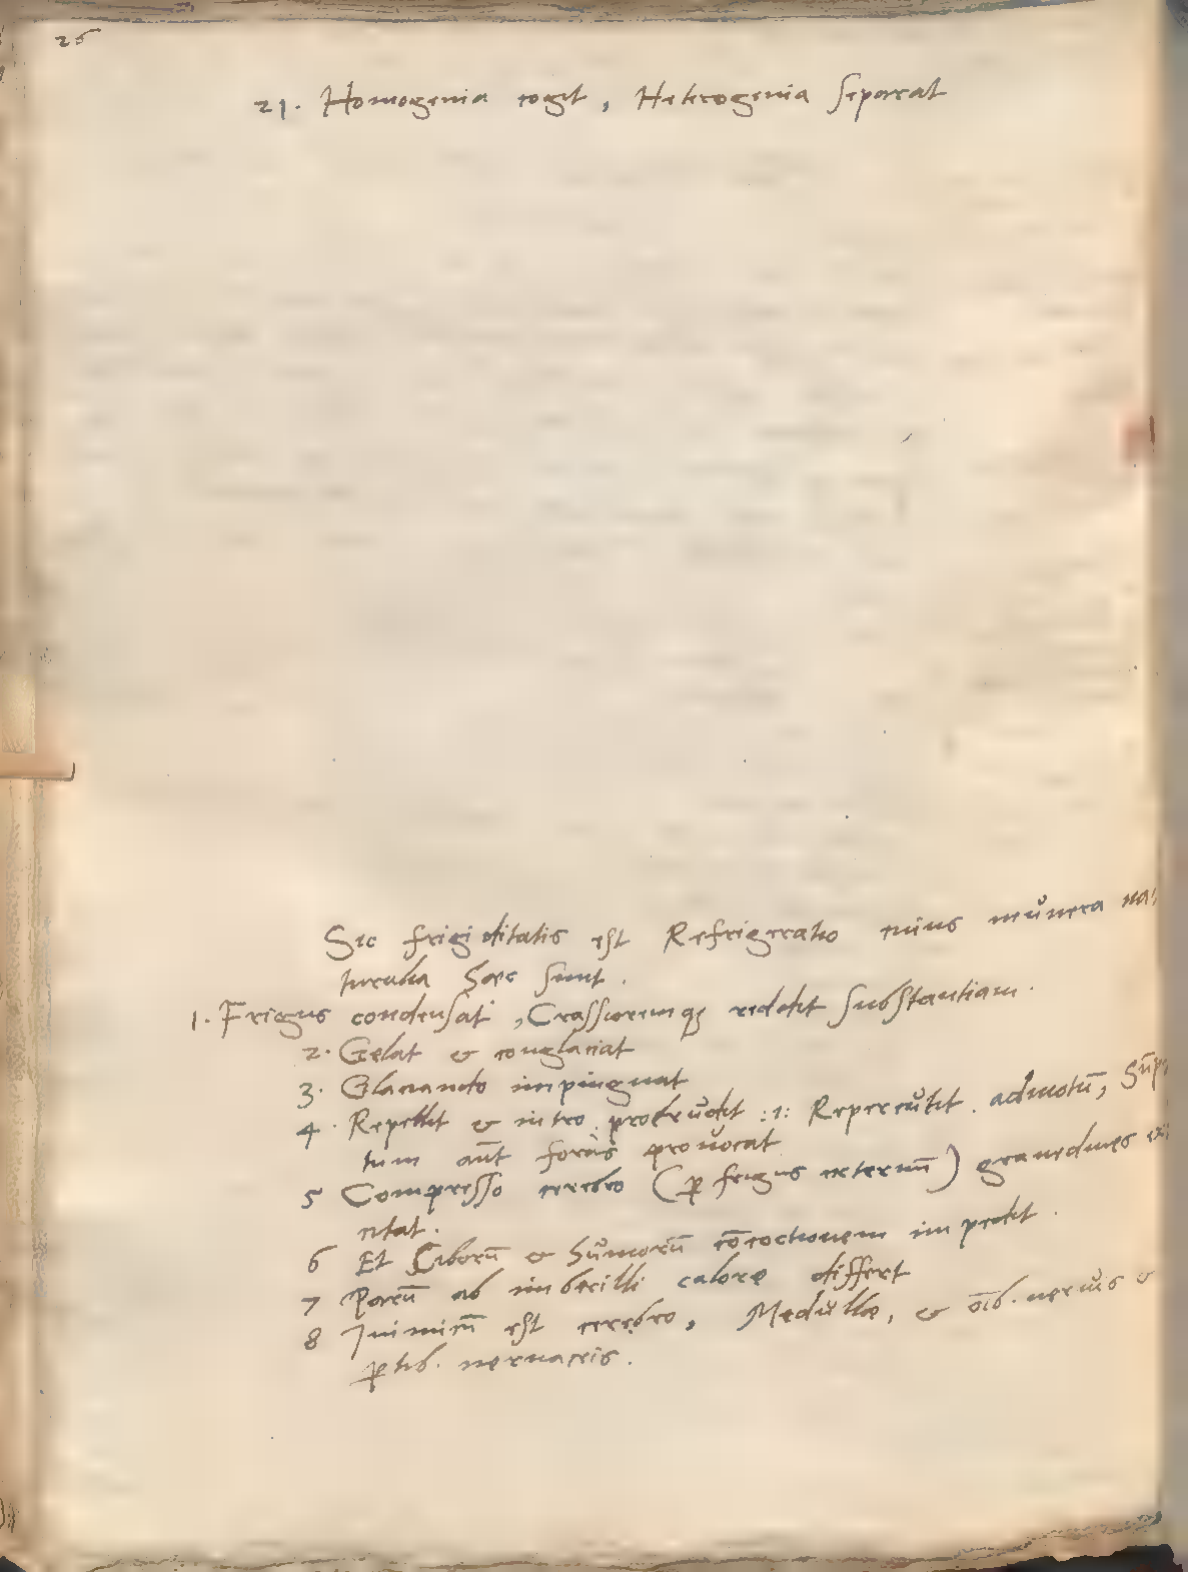 26
21. Homogenia cogit, Heterogenia separat
Sic frigiditatis est Refrigeratio cuius munera na
turalia haec sunt.
1. Frigus condensat, Crassioremq̃ reddit substantiam.
2. Gelat & conglaciat
3. Glaciando impinguat
4. Repellit & intro protrudit :i: Repercutit. admotũ, Sũp
tum aũt foras provocat
5 Compresso cerebro (p̱ frigus externũ) gravedines
citat.
6 Et Ciborũ & humorũ cõcoctionem impedit.
7 Parũ ab imbecilli calore differt
8 Inimicũ est cerebro, Medullae, & oīb. nervis &
p̱tib. nervaceis.